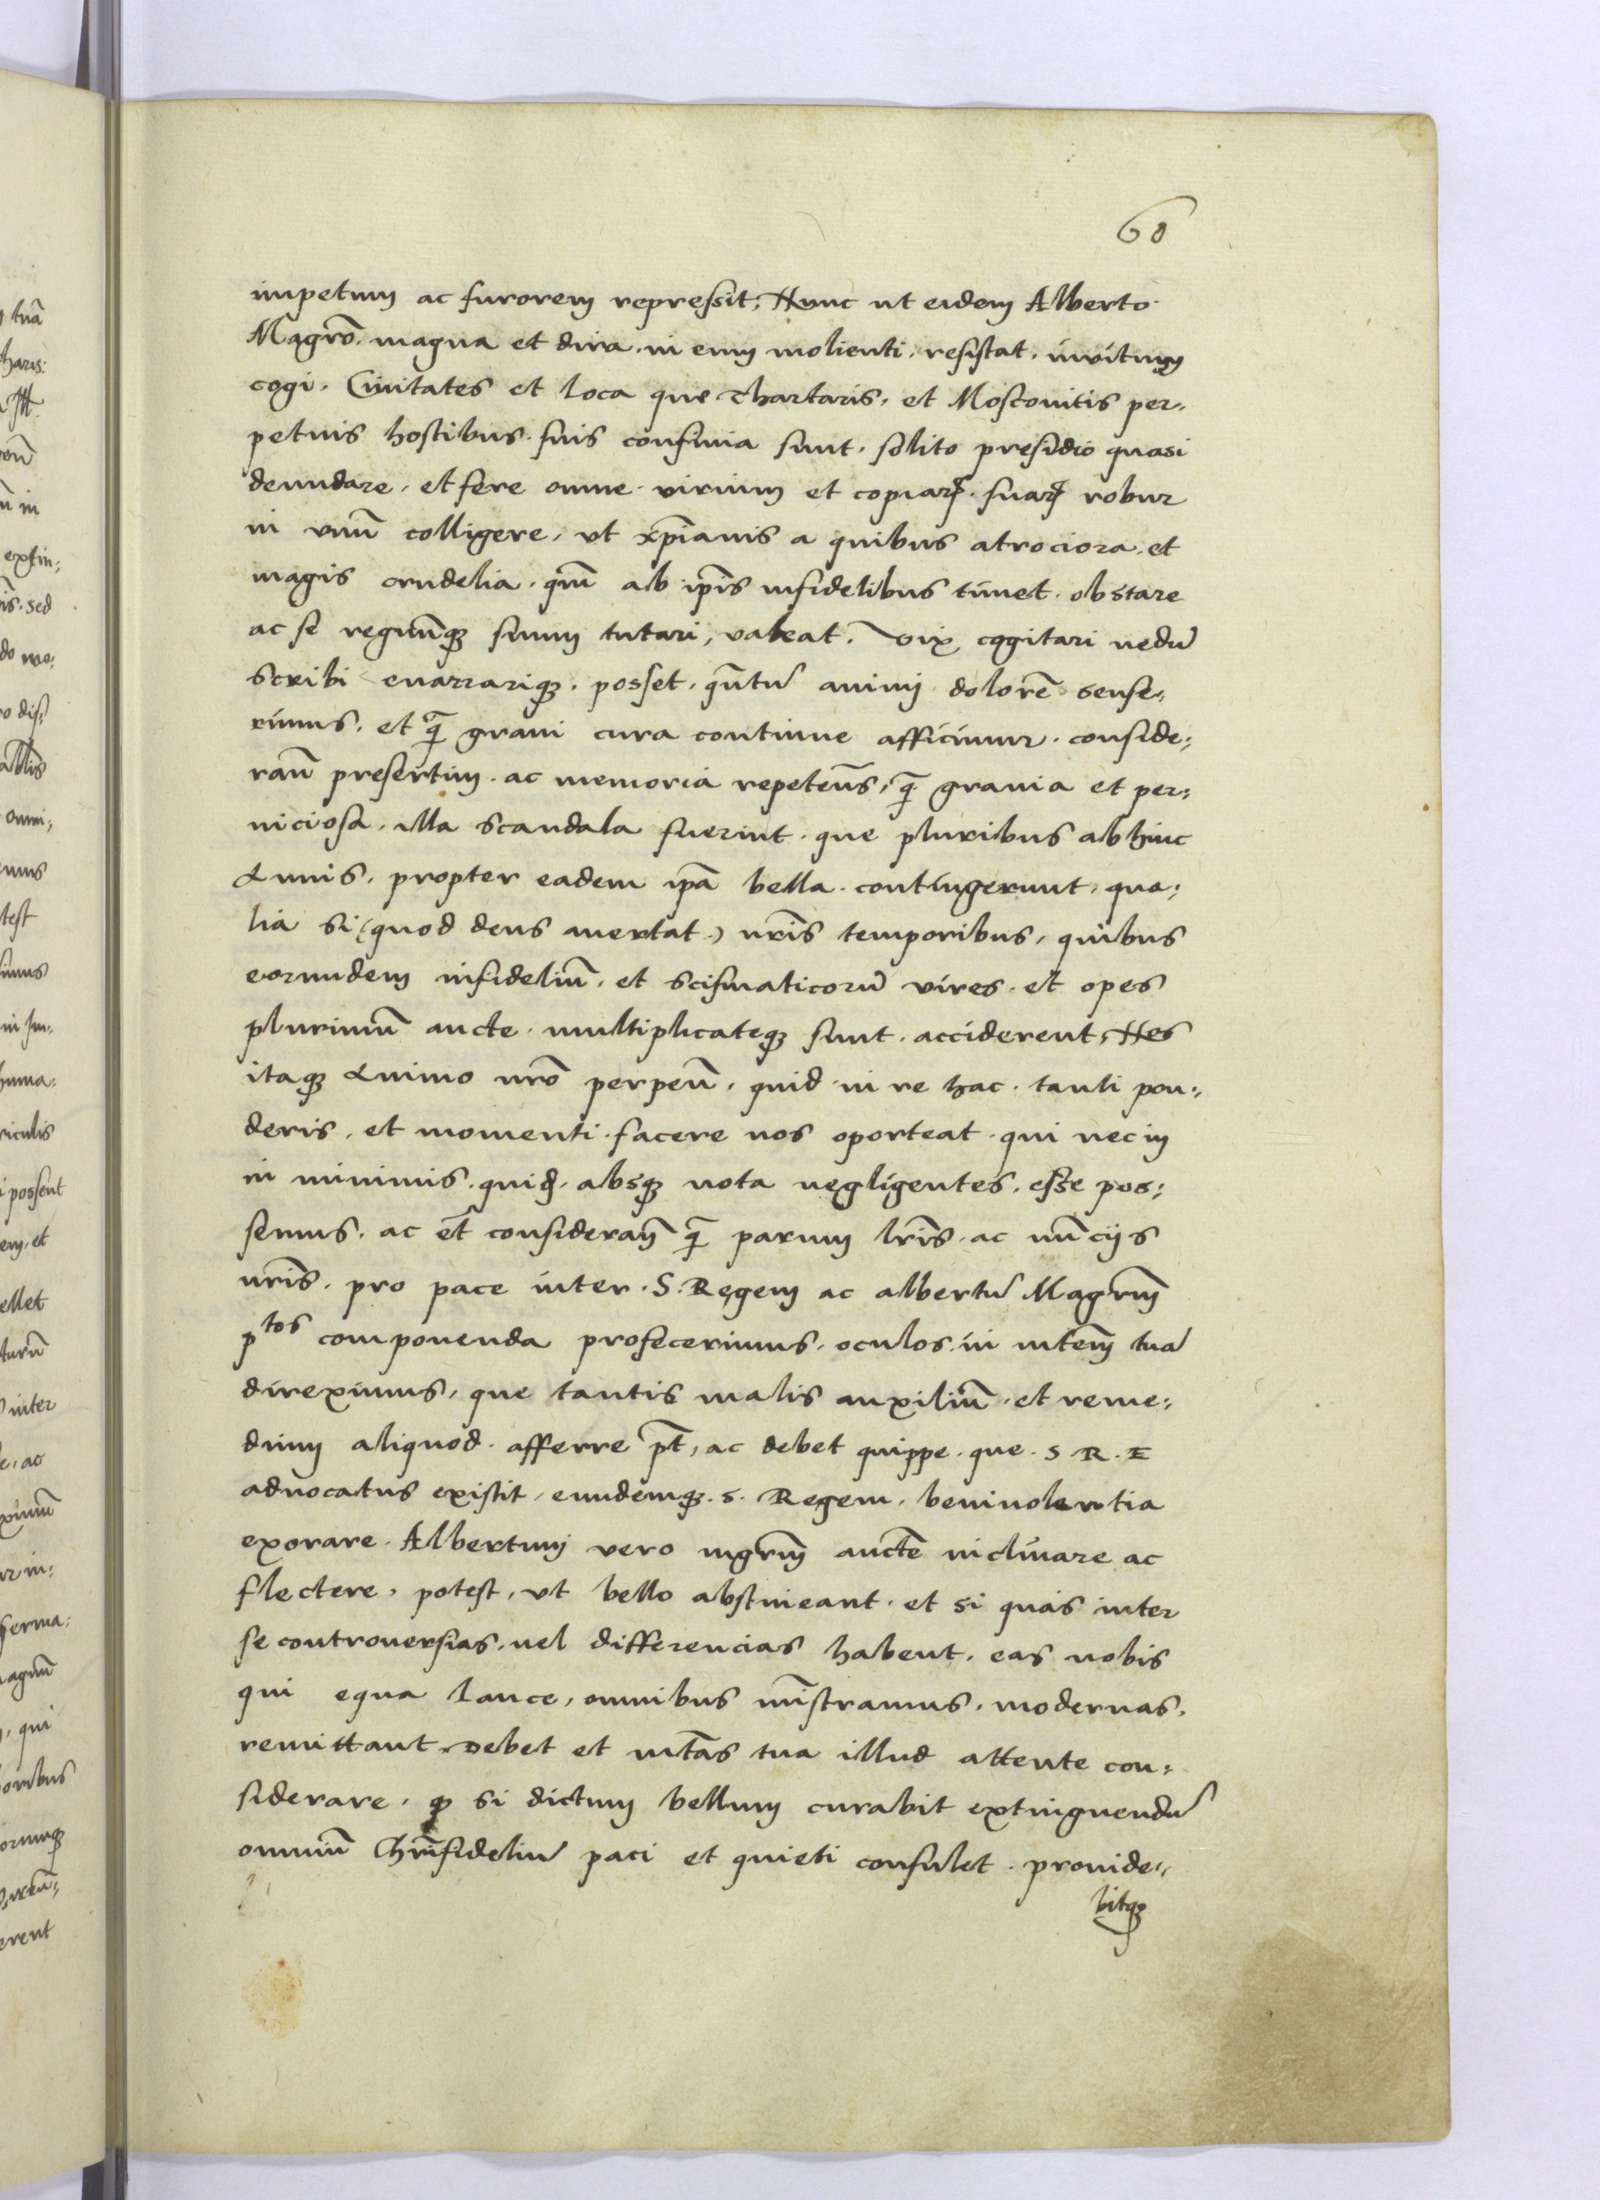 60
impetum ac furorem repressit, Hunc ut eidem Alberto
Magrō. magna et dira. in eum molienti. resistat. invitum
cogi. Civitates et loca que Thartaris. et Moscovitis per,
petuis hostibus. suis confinia sunt. solito presidio quasi
denudare. et fere omne. virium et copiarꝝ. suarꝝ robur
in vnū colligere, vt xp̄ianis a quibus atrociora. et
magis crudelia. qm̄ ab ip̄is infidelibus timet. obstare
ac se regnūqꝫ suum tutari, valeat. vix cogitari nedū
scribi enarrariqꝫ. posset. qn̄tū animj dolorē sense,
rimus. et q̄ gravi cura continue afficimur. conside,
ran̄ presertim. ac memoria repetens̄, q̄ gravia et per,
niciosa. illa scandala fuerint. que pluribus abhinc
Annis. propter eadem ip̄a bella. contingerunt, qua,
lia si (quod deus avertat.) nr̄is temporibus, quibus
eorundem infideliū. et scismaticorū vires. et opes
plurimū aucte. multiplicateqꝫ sunt. acciderent, Hes
itaqꝫ Animo nr̄o perpen̄. quid in re hac. tanti pon,
deris. et momenti. facere nos oporteat. qui nec in
in minimis. quid. absqꝫ nota negligentes. esse pos,
semus. ac et̄ consideran̄ q̄ parum lr̄is. ac nūcijs
nr̄is. pro pace inter. S. Regem ac albertū Magrm̄
ptos componenda profecerimus. oculos. in mtem̄ tuā
direximus, que tantis malis auxiliū. et reme,
dium aliquod. afferre pt̄, ac debet quippe. que. S R. E
advocatus existit, eundemqꝫ. S. Regem. benivolentia
exorare. Albertum vero mgrm̄ aucte inclinare ac
flectere, potest, vt bello abstineant. et si quas inter
se controversias. vel differencias habent. eas nobis
qui equa lance, omnibus mīstramus. modernas.
remittant. Debet et mtas̄ tua illud attente con,
siderare. qꝫ si dictum bellum curabit extinguendū
omniū Chrīfideliū paci et quieti consulet. provide,,
bitqꝫ